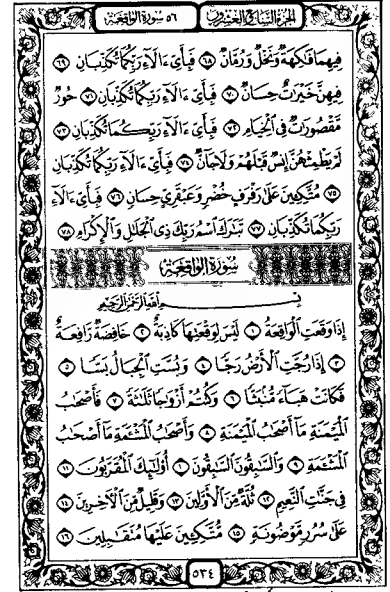 الجزء السابع والعشرون ٥٦ سورة الواقعة
فِيهِمَا فَاكِهَةٌ وَنَخْلٌ وَرُمَّانٌ ٦٨ فَبِأَيِّ ءَالَآءِ رَبِّكُمَا تُكَذِّبَانِ ٦٩
فِيهِنَّ خَيْرَٰتٌ حِسَانٌ ٧٠ فَبِأَيِّ ءَالَآءِ رَبِّكُمَا تُكَذِّبَانِ ٧١ حُورٌ
مَّقْصُورَٰتٌ فِي ٱلْخِيَامِ ٧٢ فَبِأَيِّ ءَالَآءِ رَبِّكُمَا تُكَذِّبَانِ ٧٣
لَمْ يَطْمِثْهُنَّ إِنسٌ قَبْلَهُمْ وَلَا جَآنٌّ ٧٤ فَبِأَيِّ ءَالَآءِ رَبِّكُمَا تُكَذِّبَانِ
٧٥ مُتَّكِـِٔينَ عَلَىٰ رَفْرَفٍ خُضْرٍ وَعَبْقَرِيٍّ حِسَانٍ ٧٦ فَبِأَيِّ ءَالَآءِ
رَبِّكُمَا تُكَذِّبَانِ ٧٧ تَبَٰرَكَ ٱسْمُ رَبِّكَ ذِي ٱلْجَلَٰلِ وَٱلْإِكْرَامِ ٧٨
سُورَةُ الوَاقِعَةِ
بِسْمِ ٱللَّهِ ٱلرَّحْمَٰنِ ٱلرَّحِيمِ
إِذَا وَقَعَتِ ٱلْوَاقِعَةُ ١ لَيْسَ لِوَقْعَتِهَا كَاذِبَةٌ ٢ خَافِضَةٌ رَّافِعَةٌ
٣ إِذَا رُجَّتِ ٱلْأَرْضُ رَجًّا ٤ وَبُسَّتِ ٱلْجِبَالُ بَسًّا ٥
فَكَانَتْ هَبَآءً مُّنۢبَثًّا ٦ وَكُنتُمْ أَزْوَٰجًا ثَلَٰثَةً ٧ فَأَصْحَٰبُ
ٱلْمَيْمَنَةِ مَآ أَصْحَٰبُ ٱلْمَيْمَنَةِ ٨ وَأَصْحَٰبُ ٱلْمَشْـَٔمَةِ مَآ أَصْحَٰبُ
ٱلْمَشْـَٔمَةِ ٩ وَٱلسَّٰبِقُونَ ٱلسَّٰبِقُونَ ١٠ أُو۟لَٰٓئِكَ ٱلْمُقَرَّبُونَ ١١
فِي جَنَّٰتِ ٱلنَّعِيمِ ١٢ ثُلَّةٌ مِّنَ ٱلْأَوَّلِينَ ١٣ وَقَلِيلٌ مِّنَ ٱلْءَاخِرِينَ ١٤
عَلَىٰ سُرُرٍ مَّوْضُونَةٍ ١٥ مُّتَّكِـِٔينَ عَلَيْهَا مُتَقَٰبِلِينَ ١٦
٥٣٤